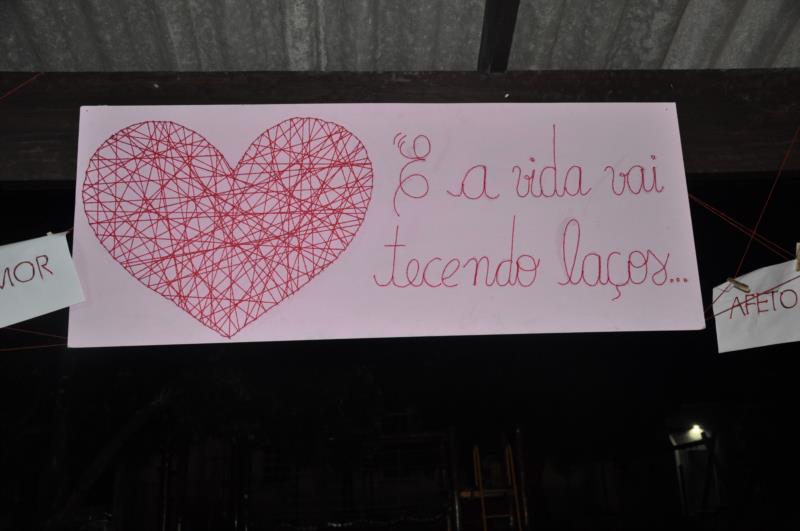 MOR
"E a vida vai
tecendo laços...
AFETO